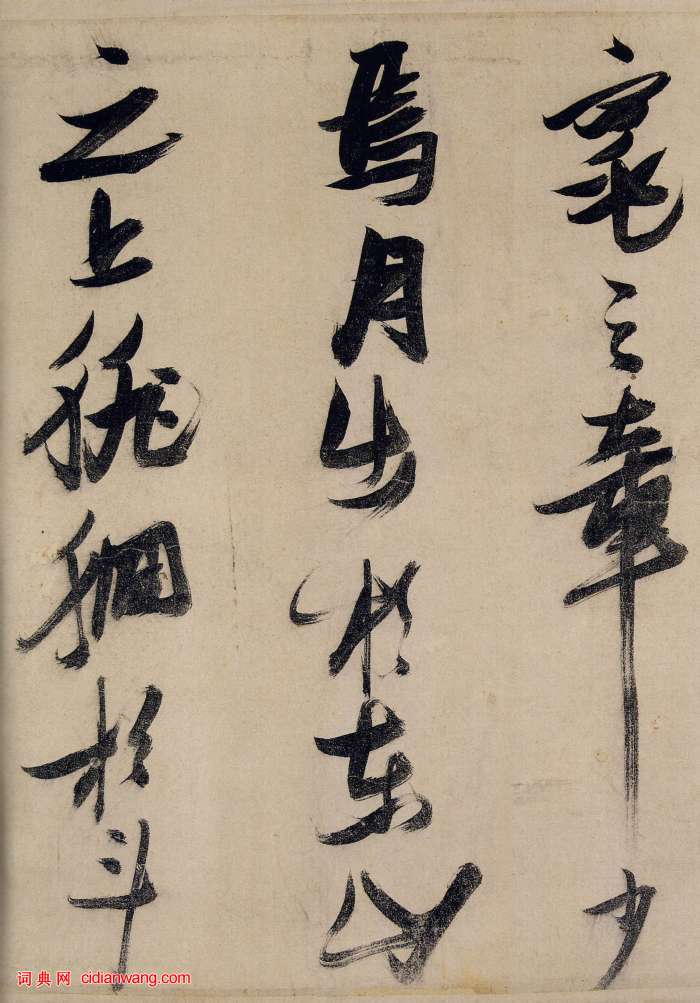 窕之章少
焉月出於東山
之上徘徊於斗
词典网 cidianwang.com